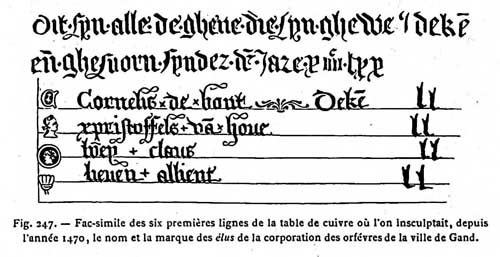 Dit·syn·alle·de·ghene·die·syn· dekē
eñ·ghesworn·syndez·dē·Jaze·xiiiiᶜ·lxx
Cornelis × de × bont Dekē ll
xpristoffels + vā × houe ll
+ claus ll
lieuen + ll
Fig. 247. — Fac-simile des six premières lignes de la table de cuivre où l'on insculptait, depuis
l'année 1470, le nom et la marque des élus de la corporation des orfévres de la ville de Gand.